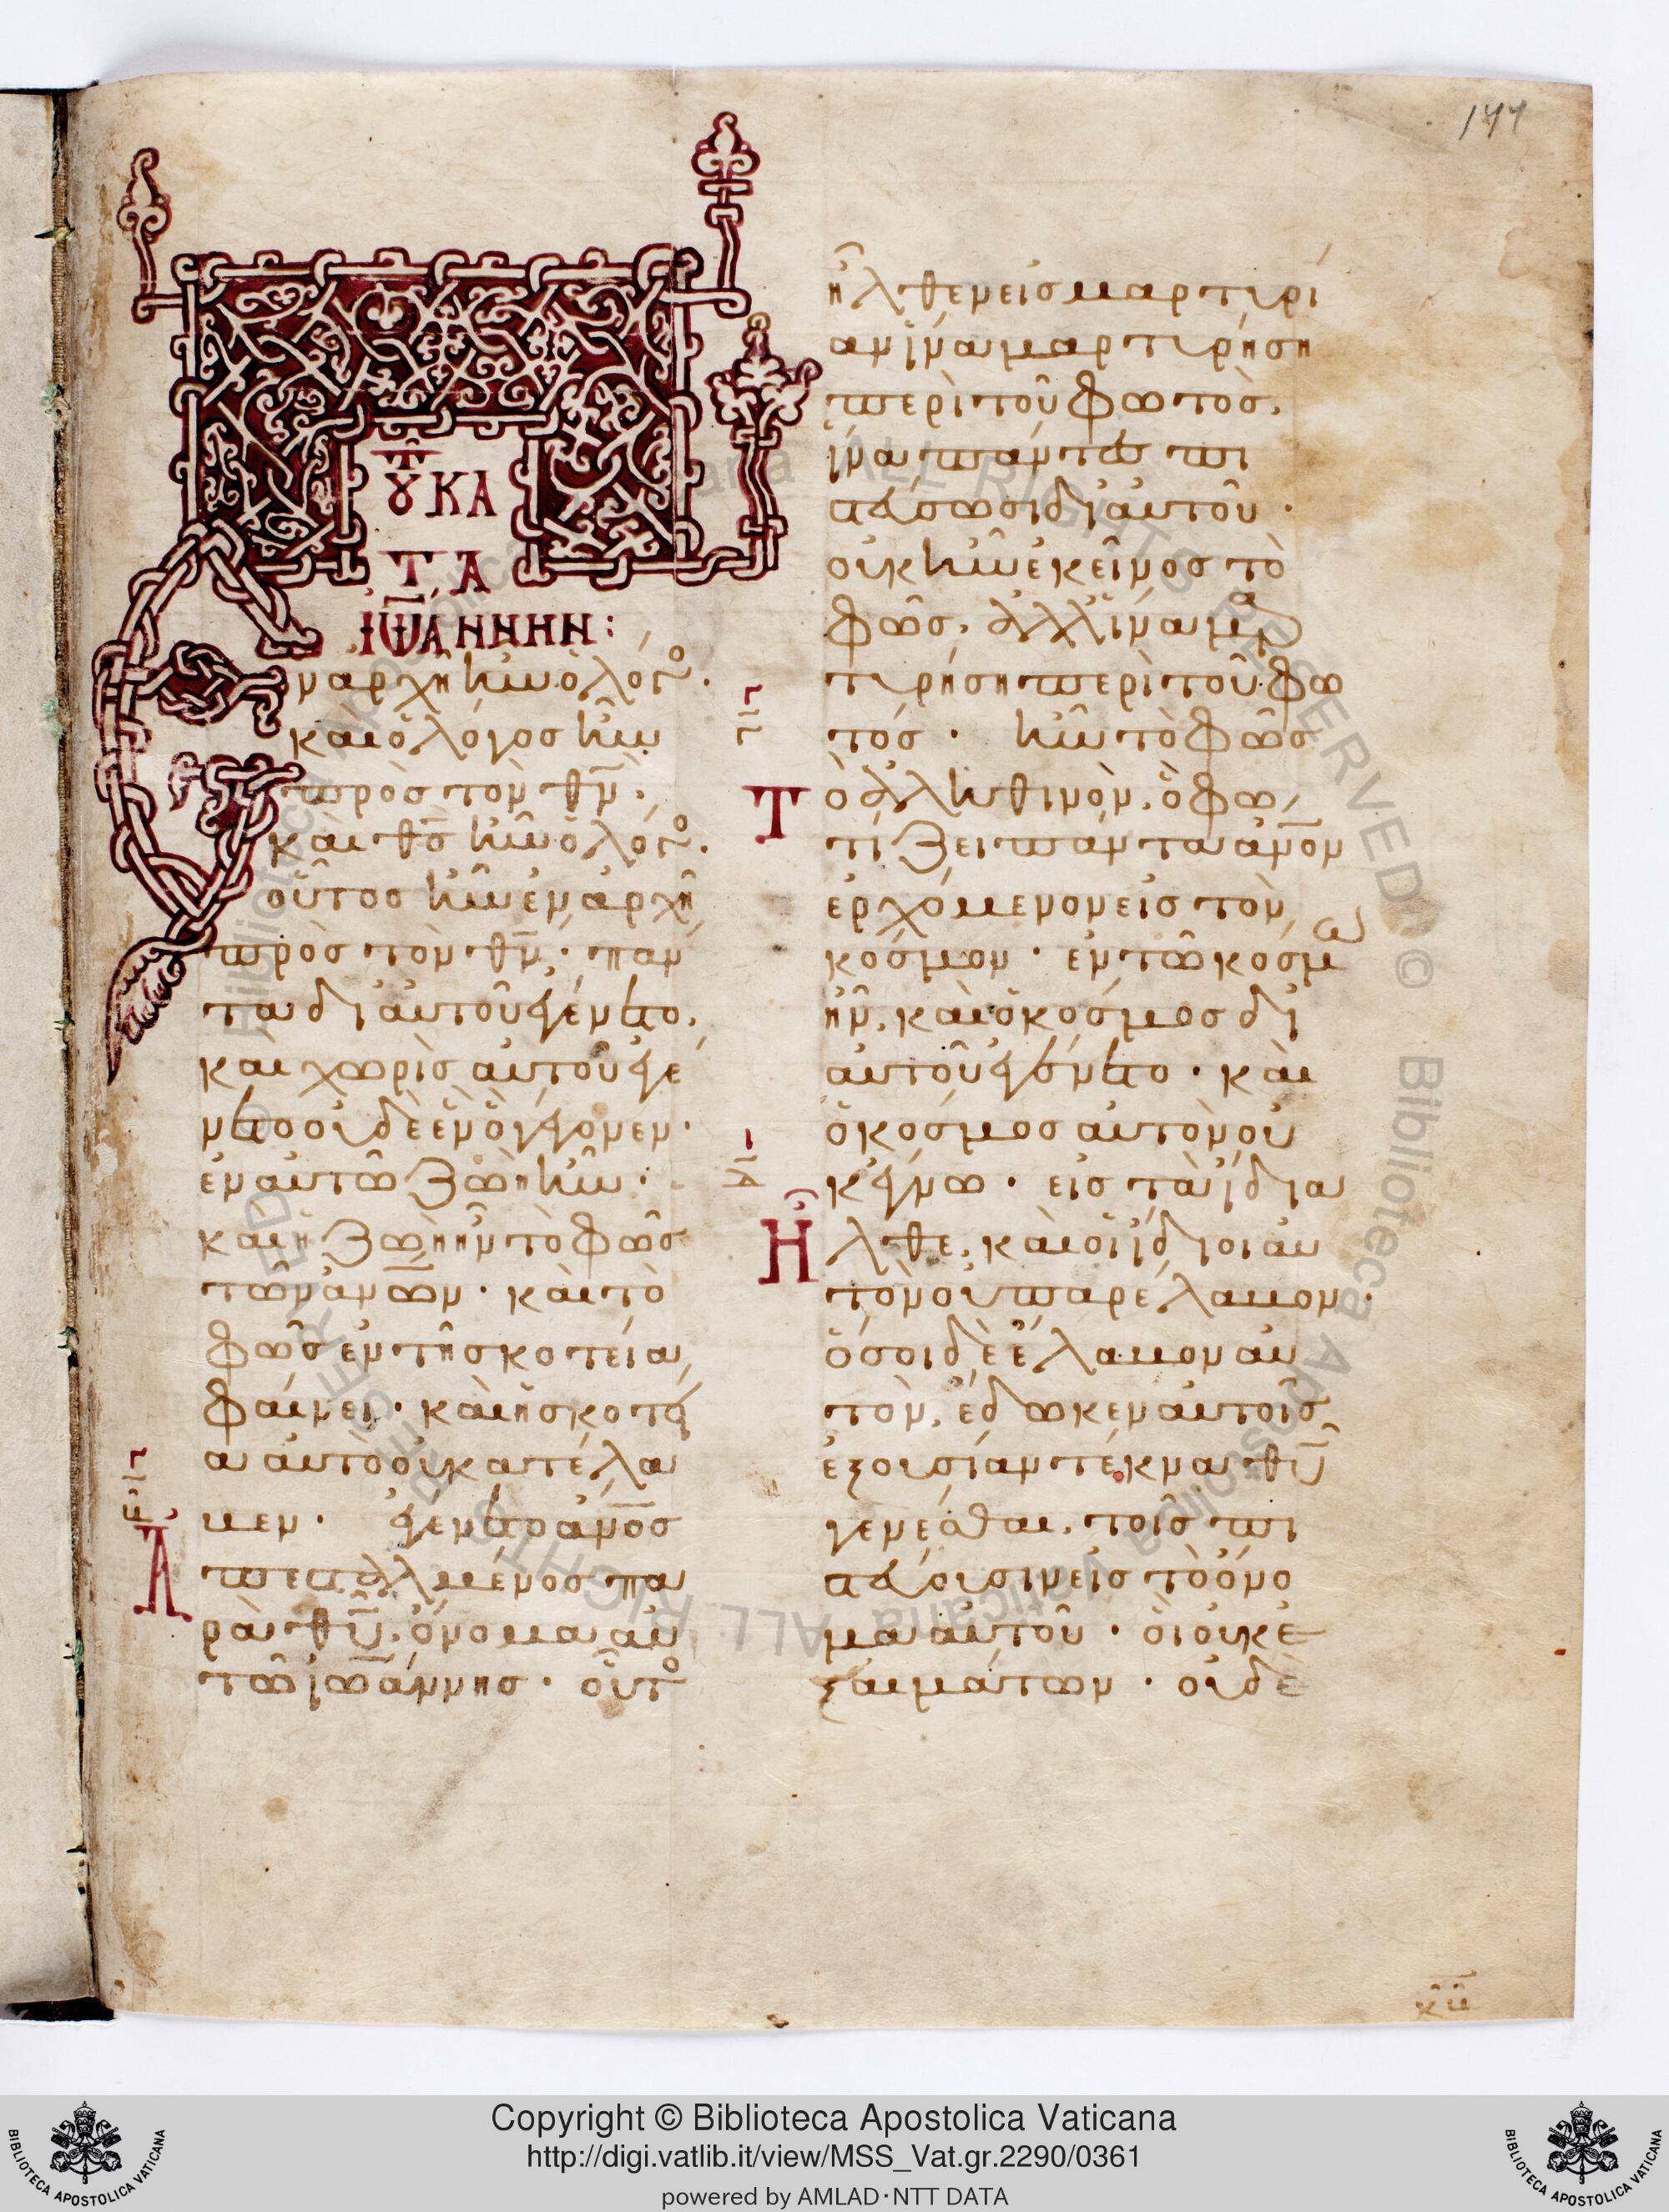 177
ΤΟΥ ΚΑ
ΤΑ
ἸΩΆΝΝΗΝ:
Ἐν ἀρχῇ ἦν ὁ λόγος.
καὶ ὁ λόγος ἦν
πρὸς τὸν θν̅,
καὶ θς̅ ἦν ὁ λόγος.
οὗτος ἦν ἐν ἀρχῇ
πρὸς τὸν θν̅· πάν
τα δι' αὐτοῦ ἐγένετο,
καὶ χωρὶς αὐτοῦ ἐγέ
νετο οὐδὲ ἓν ὃ γέγονεν·
ἐν αὐτῶ ζωὴ ἦν·
καὶ ἡ ζωὴ ἦν τὸ φῶς
τῶν ἀνω̅ν· καὶ τὸ
φῶς ἐν τῆ σκοτεία
φαίνει· καὶ ἡ σκοτεί
α αὐτὸ οὐ κατέλα
βεν· ἐγένετο ἀνο̅ς
Ἀ
πεσταλμένος πα
ρὰ θυ̅, ὄνομα αὐ
τῶ ἰωάννης· οὗτος
ἦλθεν εἰς μαρτυρί
αν ἵνα μαρτυρήση
περὶ τοῦ φωτὸς,
ἵνα πάντες πι
στεύσωσι δι' αὐτοῦ·
οὐκ ἦν ἐκεῖνος τὸ
φῶς, ἀλλ' ἵνα μαρ
τυρήση περὶ τοῦ φω
τός· ἦν τὸ φῶς
Τ
ὸ ἀληθινὸν, ὃ φω
τίζει πάντα ἀνο̅ν
ἐρχόμενον εἰς τὸν
κόσμον· ἐν τῶ κόσμω
ἦν, καὶ ὁ κόσμος δι'
αὐτοῦ ἐγένετο· καὶ
ὁ κόσμος αὐτὸν οὐ
κ ἔγνω· εἰς τὰ ἴδια
Ἦ
λθε, καὶ οἱ ἴδιοι αὐ
τὸν οὐ παρέλαβον·
ὅσοι δὲ ἔλαβον αὐ
τὸν, ἔδωκεν αὐτοῖς
ἐξουσίαν τέκνα θυ̅
γενέσθαι, τοῖς πι
στεύουσιν εἰς τὸ ὄνο
μα αὐτοῦ· οἳ οὐκ ἐ
ξ αἱμάτων· οὐδὲ
Copyright © Biblioteca Apostolica Vaticana
http://digi.vatlib.it/view/MSS_Vat.gr.2290/0361
powered by AMLAD·NTT DATA
BIBLIOTECA APOSTOLICA VATICANA
BIBLIOTECA APOSTOLICA VATICANA